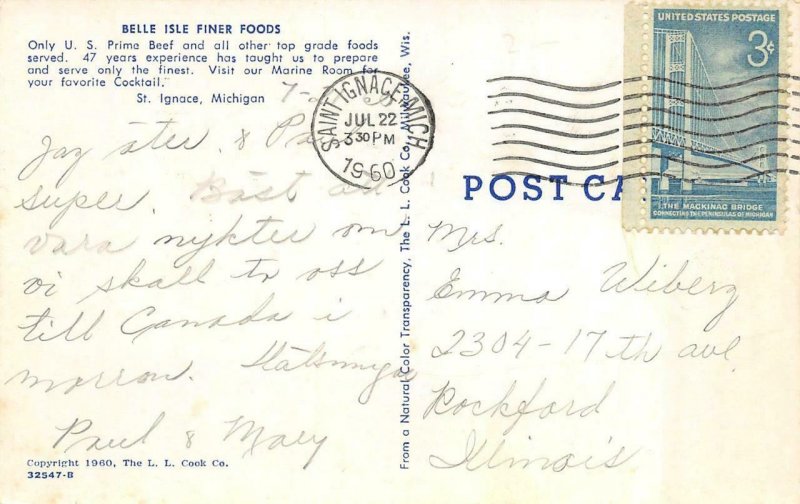 BELLE ISLE FINER FOODS
Only U. S. Prime Beef and all other top grade foods
served. 47 years experience has taught us to prepare
and serve only the finest. Visit our Marine Room for
your favorite Cocktail.
St. Ignace, Michigan
Jag åter &
super. Bäst att
vara nykter om
vi skall ta oss
till Canada i
morron.
Paul & Mary
Copyright 1960, The L. L. Cook Co.
32547-B
From a Natural Color Transparency, The L. L. Cook Co., Milwaukee, Wis.
SAINT IGNACE, MICH
JUL 22
3 30 PM
1960
UNITED STATES POSTAGE
3¢
THE MACKINAC BRIDGE
CONNECTING THE PENINSULAS OF MICHIGAN
POST CA
Mrs.
Emma Wiberg
2304-17 th ave
Rockford
Illinois